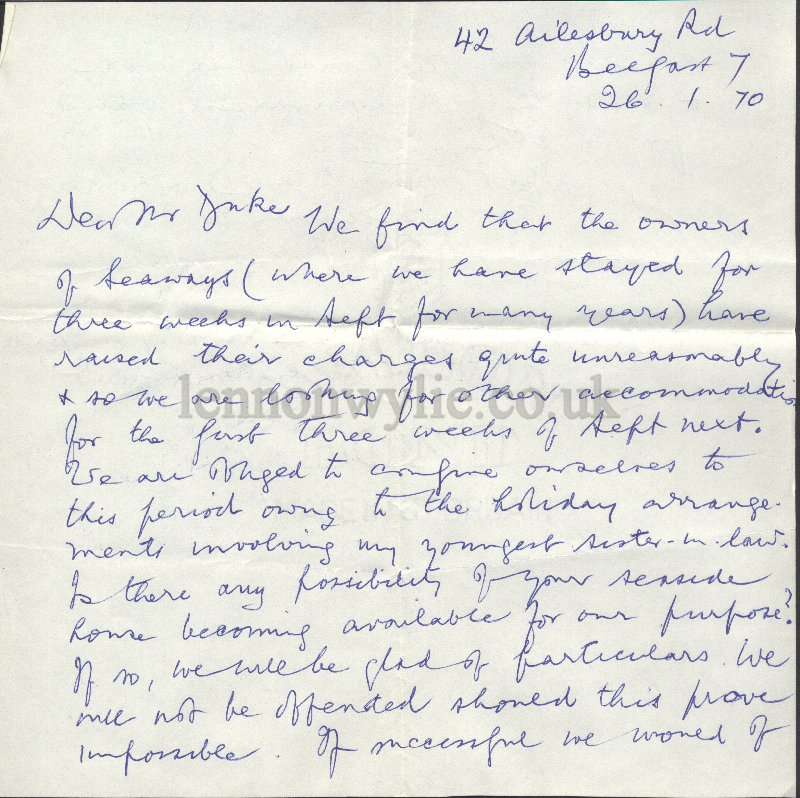 42 Ailesbury Rd
Belfast 7
26. 1. 70
Dear Mr Duke We find that the owners
of Seaways (where we have stayed for
three weeks in Sept for many years) have
raised their charges quite unreasonably
& so we are looking for other accommodation
for the first three weeks of Sept next.
We are obliged to confine ourselves to
this period owing to the holiday arrange-
ments involving my youngest sister-in-law.
Is there any possibility of your seaside
house becoming available for our purpose?
If so, we will be glad of particulars. We
will not be offended should this prove
impossible. If successful we would of
lennonwylie.co.uk